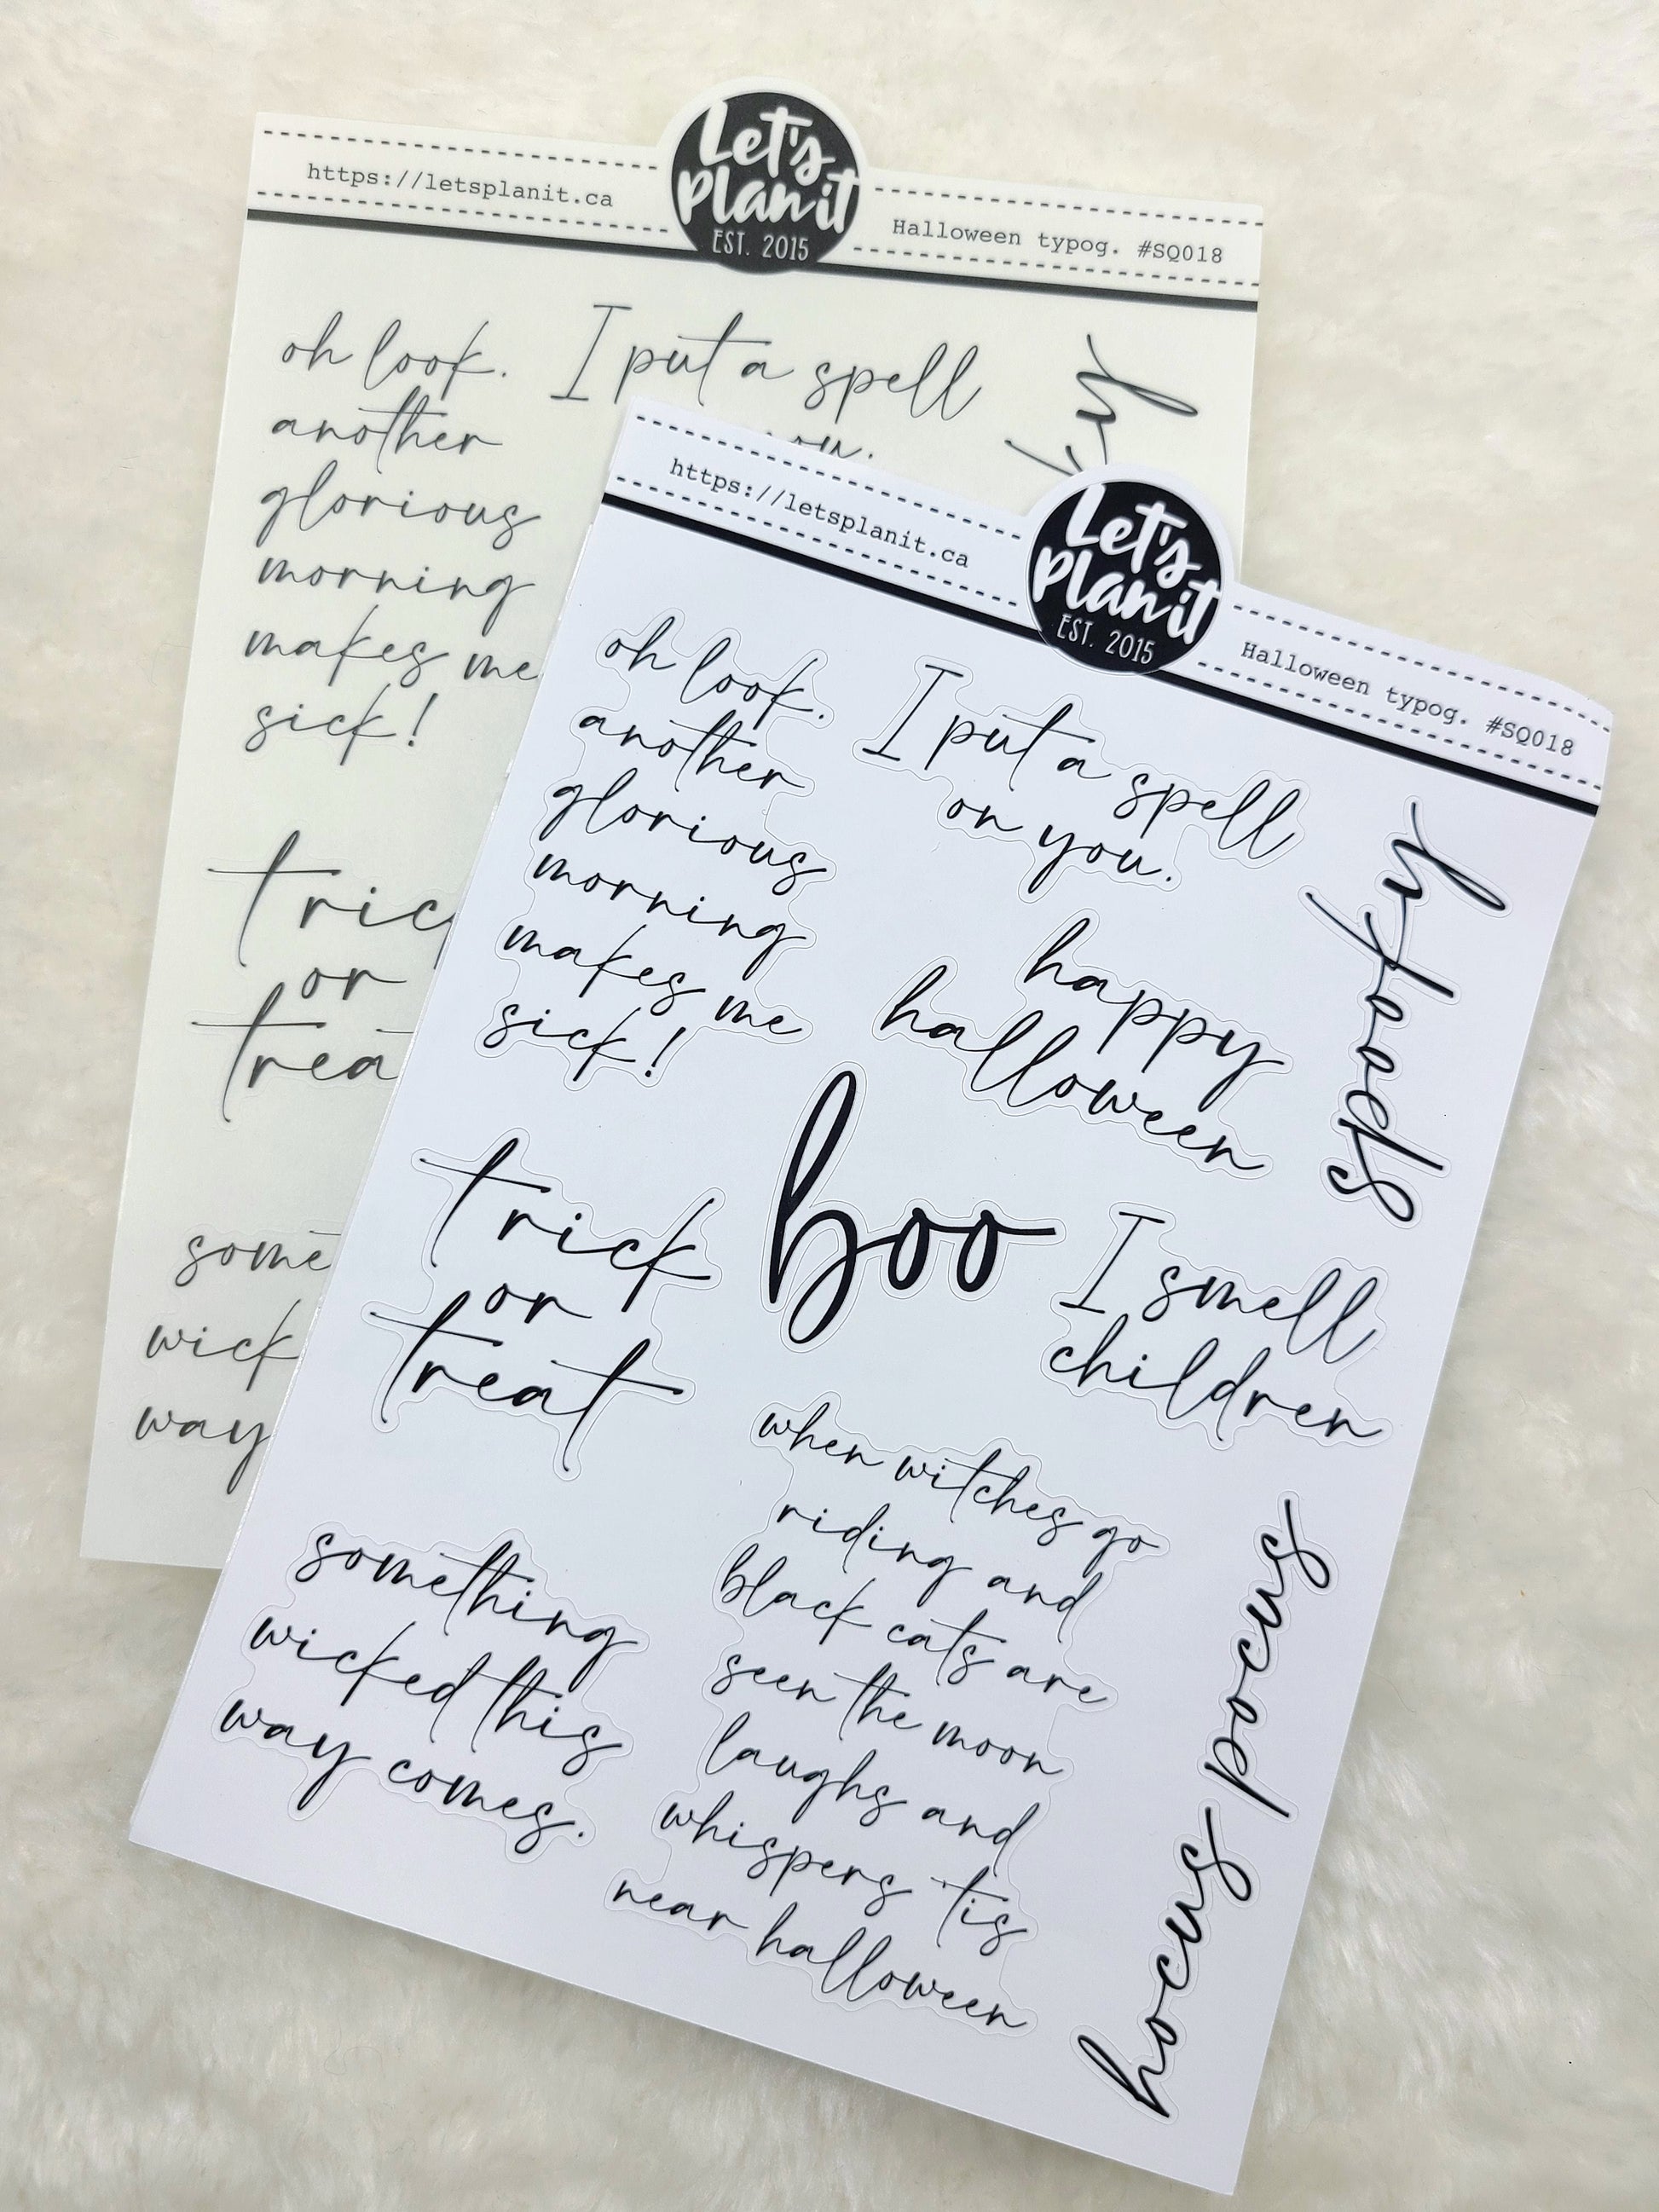 https://letsplanit.ca
Let's
Planit
EST. 2015
Halloween typog. #SQ018
oh look.
another
glorious
morning
makes me
sick!
I put a spell
or
https://letsplanit.ca
Let's
Planit
EST. 2015
Halloween typog. #SQ018
oh look.
another
glorious
morning
makes me
sick!
I put a spell
on you.
happy
halloween
spooky
trick
or
treat
boo
I smell
children
something
wicked this
way comes.
when witches go
riding and
black cats are
seen the moon
laughs and
whispers 'tis
near halloween
hocus pocus